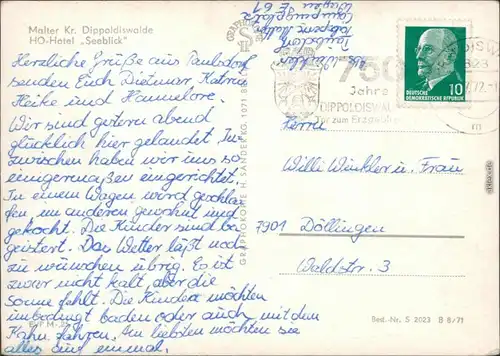 Malter Kr. Dippoldiswalde
HO-Hotel „Seeblick"
Herzliche Grüße aus Paulsdorf
senden Euch Dietmar, Katrin,
Heike und Hannelore.
Wir sind gestern abend
glücklich hier gelandet. In-
zwischen haben wir uns so
einigermaßen eingerichtet.
In einem Wagen wird geschla-
fen, im anderen gewohnt und
gekocht. Die Kinder sind be-
geistert. Das Wetter läßt noch
zu wünschen übrig. Es ist
zwar nicht kalt, aber die
Sonne fehlt. Die Kinder möchten
unbedingt baden oder auch mit dem
Kahn fahren. Am liebsten möchten sie
alles auf einmal.
GRAPHOKOPIE H. SANDER KG. 1071
Winkler
Paulsdorf
Campingplatz
Wagen E 61
750
Jahre
DIPPOLDISWALDE
Tor zum Erzgebirge
10
DEUTSCHE
DEMOKRATISCHE REPUBLIK
Herrn
Willi Winkler u. Frau
7901 Döllingen
Waldstr. 3
Best.-Nr. S 2023 B 8/71